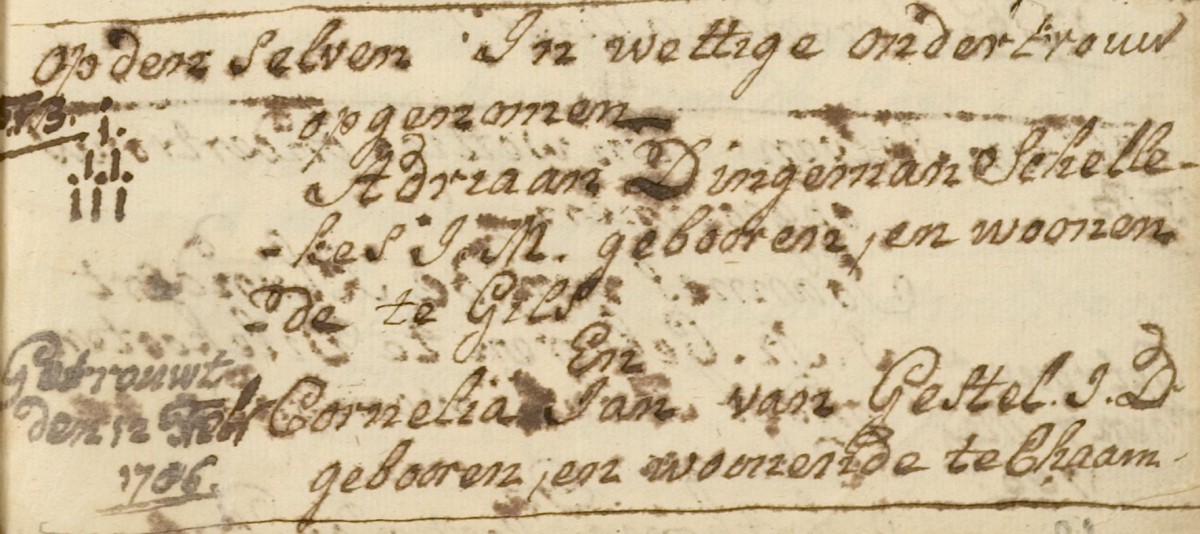 op den selven In wettige ondertrouw
opgenomen
i.
.i.i.
iii
Adriaan Dingeman Schelle-
-kes J.M. gebooren, en woonen
-de te Gils
En
Getrouwt
den 12 Febr
1786.
Cornelia Jan van Gestel. J.D
gebooren, en woonende te Chaam.